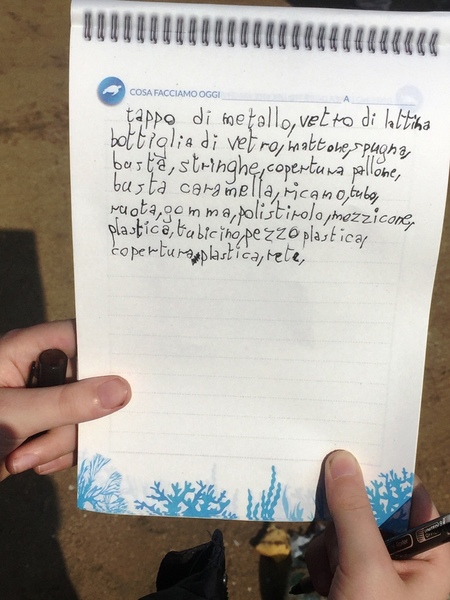 COSA FACCIAMO OGGI A
tappo di metallo, vetro di lattina
bottiglia di vetro, mattone, spugna,
busta, stringhe, copertura pallone,
busta caramella, ricamo, tubo,
ruota, gomma, polistirolo, mozzicone,
plastica, tubicino, pezzo plastica,
copertura plastica, rete,